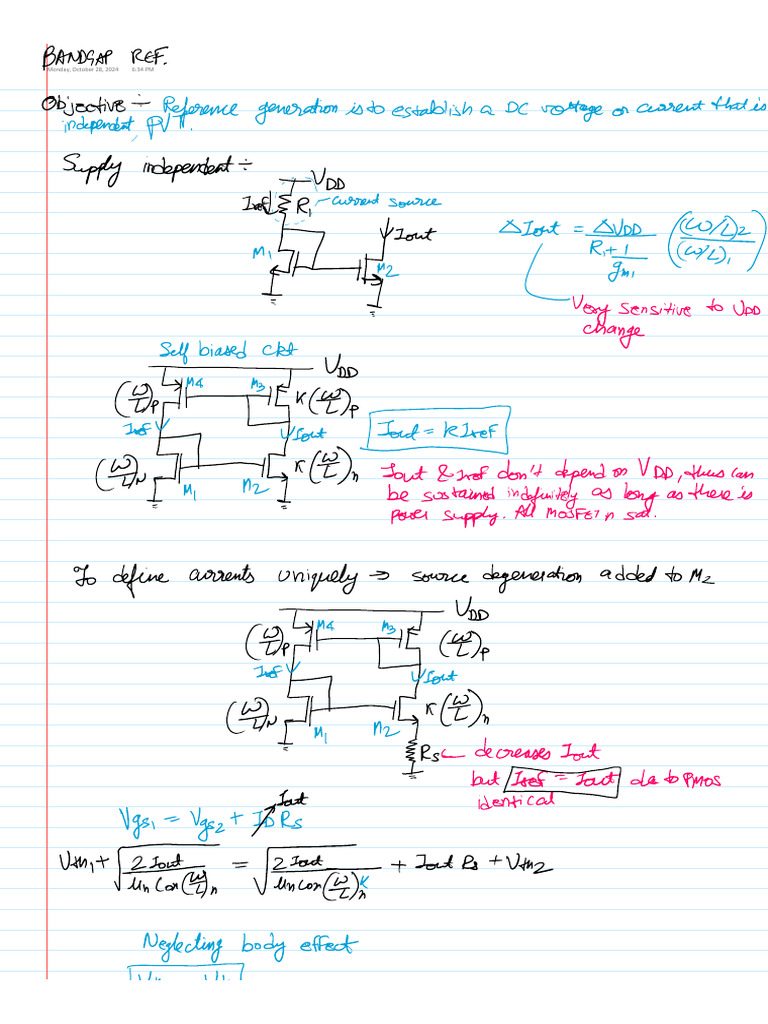 BANDGAP REF.
Monday, October 28, 2024 6:34 PM
Objective ÷ Reference generation is to establish a DC voltage or current that is
independent, PVT.
Supply independent ÷
VDD
Iref R1 – current source
Iout
M1 M2
ΔIout = ΔVDD / (R1 + 1/gm1) ((W/L)2 / (W/L)1)
Very sensitive to VDD
change
Self biased ckt
VDD
(W/L)P M4 M3 K(W/L)P
Iref Iout
Iout = K Iref
(W/L)N M1 M2 K(W/L)n
Iout & Iref don't depend on VDD, thus can
be sustained indefinitely as long as there is
power supply. All MOSFET in sat.
To define currents uniquely → source degeneration added to M2
VDD
(W/L)P M4 M3 (W/L)P
Iref Iout
(W/L)N M1 M2 K(W/L)n
RS decreases Iout
but Iref = Iout due to PMOS
identical
Iout
Vgs1 = Vgs2 + ID RS
Vth1 + √(2 Iout / μn Cox (W/L)n) = √(2 Iout / μn Cox (W/L)n K) + Iout Rs + Vth2
Neglecting body effect